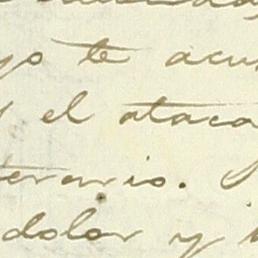 yo te acu
el ataca
terario.
dolor y